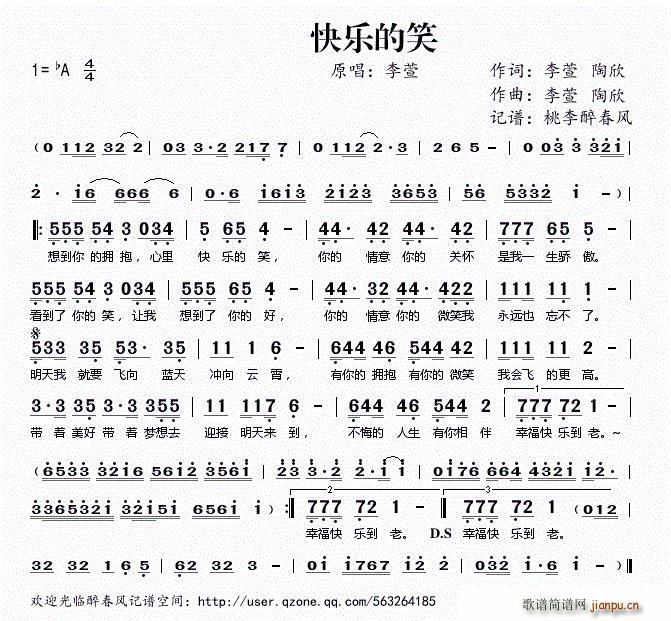 快乐的笑
1=♭A 4/4 原唱：李萱 作词：李萱 陶欣
作曲：李萱 陶欣
记谱：桃李醉春风
(0 112 32 2 | 03 3·2 217 7 | 0 112 3 2 | 2 6 5 - | 0 03 3 32i |
2 · i6 666 6 | 0·6 i6i3 2i23 3653 | 56 5332 i - )|
‖: 555 54 3 034 | 5 65 4 - | 44· 42 44· 42 | 777 65 5 - |
想到你 的拥 抱，心里 快 乐的 笑， 你的 情意 你的 关怀 是我一 生骄 傲。
555 54 3 034 | 555 65 4 - | 44· 32 44· 422 | 111 11 1 - |
看到了 你的 笑，让我 想到了 你的 好， 你的 情意 你的 微笑我 永远也 忘不 了。
533 35 53· 35 | 11 1 6 - | 644 46 544 42 | 111 11 2 - |
明天我 就要 飞向 蓝天 冲向 云 霄， 有你的 拥抱 有你的 微笑 我会飞 的更 高。
3·3 35 3·3 355 | 11 117 6 - | 644 46 544 2 | 777 72 1 - |
1
带 着 美好 带 着 梦想去 迎接 明天来 到， 不悔的 人生 有你相 伴 幸福快 乐到 老。~
(6533 32i6 56i2 356i | 23 3·2 2·i i | 0i76 664 432i i2· |
3365332i 2355i 656i i ) :‖ 777 72 1 - ‖ 777 72 1 (012 |
2 3
幸福快 乐到 老。 D.S 幸福快 乐到 老。
32 32 1 6 5 | 62 32 3 - | 0i 32 2 32 | 03 i·6 i - )‖
欢迎光临醉春风记谱空间：http://user.qzone.qq.com/563264185
歌谱简谱网 jianpu.cn